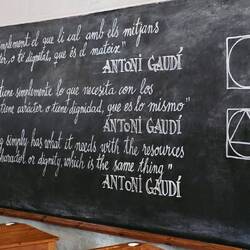 implement el que li cal amb els mitjans
ter, o té dignitat, que és el mateix"
ANTONI GAUDÍ
tiene simplemente lo que necesita con los
tiene carácter o tiene dignidad, que es lo mismo"
ANTONI GAUDÍ
simply has what it needs with the resources
character or dignity which is the same thing"
ANTONI GAUDÍ